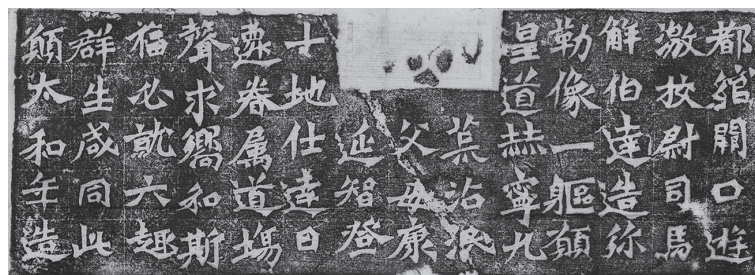 都綰闕口遊
激挍尉司馬
解伯達造弥
勒像一軀願
皇道赫寧九
荒沾泯
父母康
延智登
十地仕達日
遷眷属道場
聲求嚮和斯
福必就六趣
群生咸同此
願太和年造